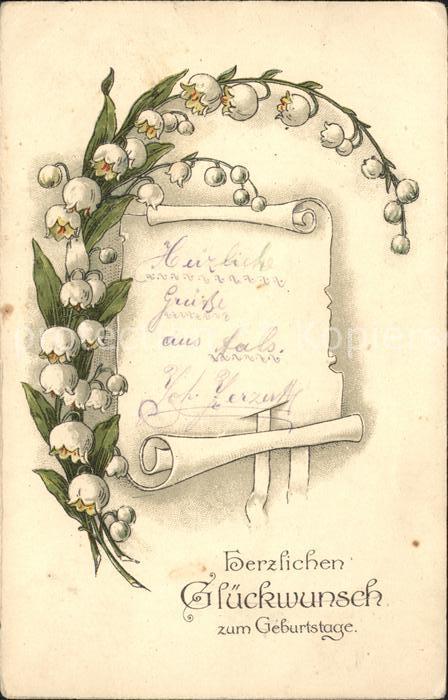 Herzliche
Grüße
aus
Joh.
Herzlichen
Glückwunsch
zum Geburtstage.